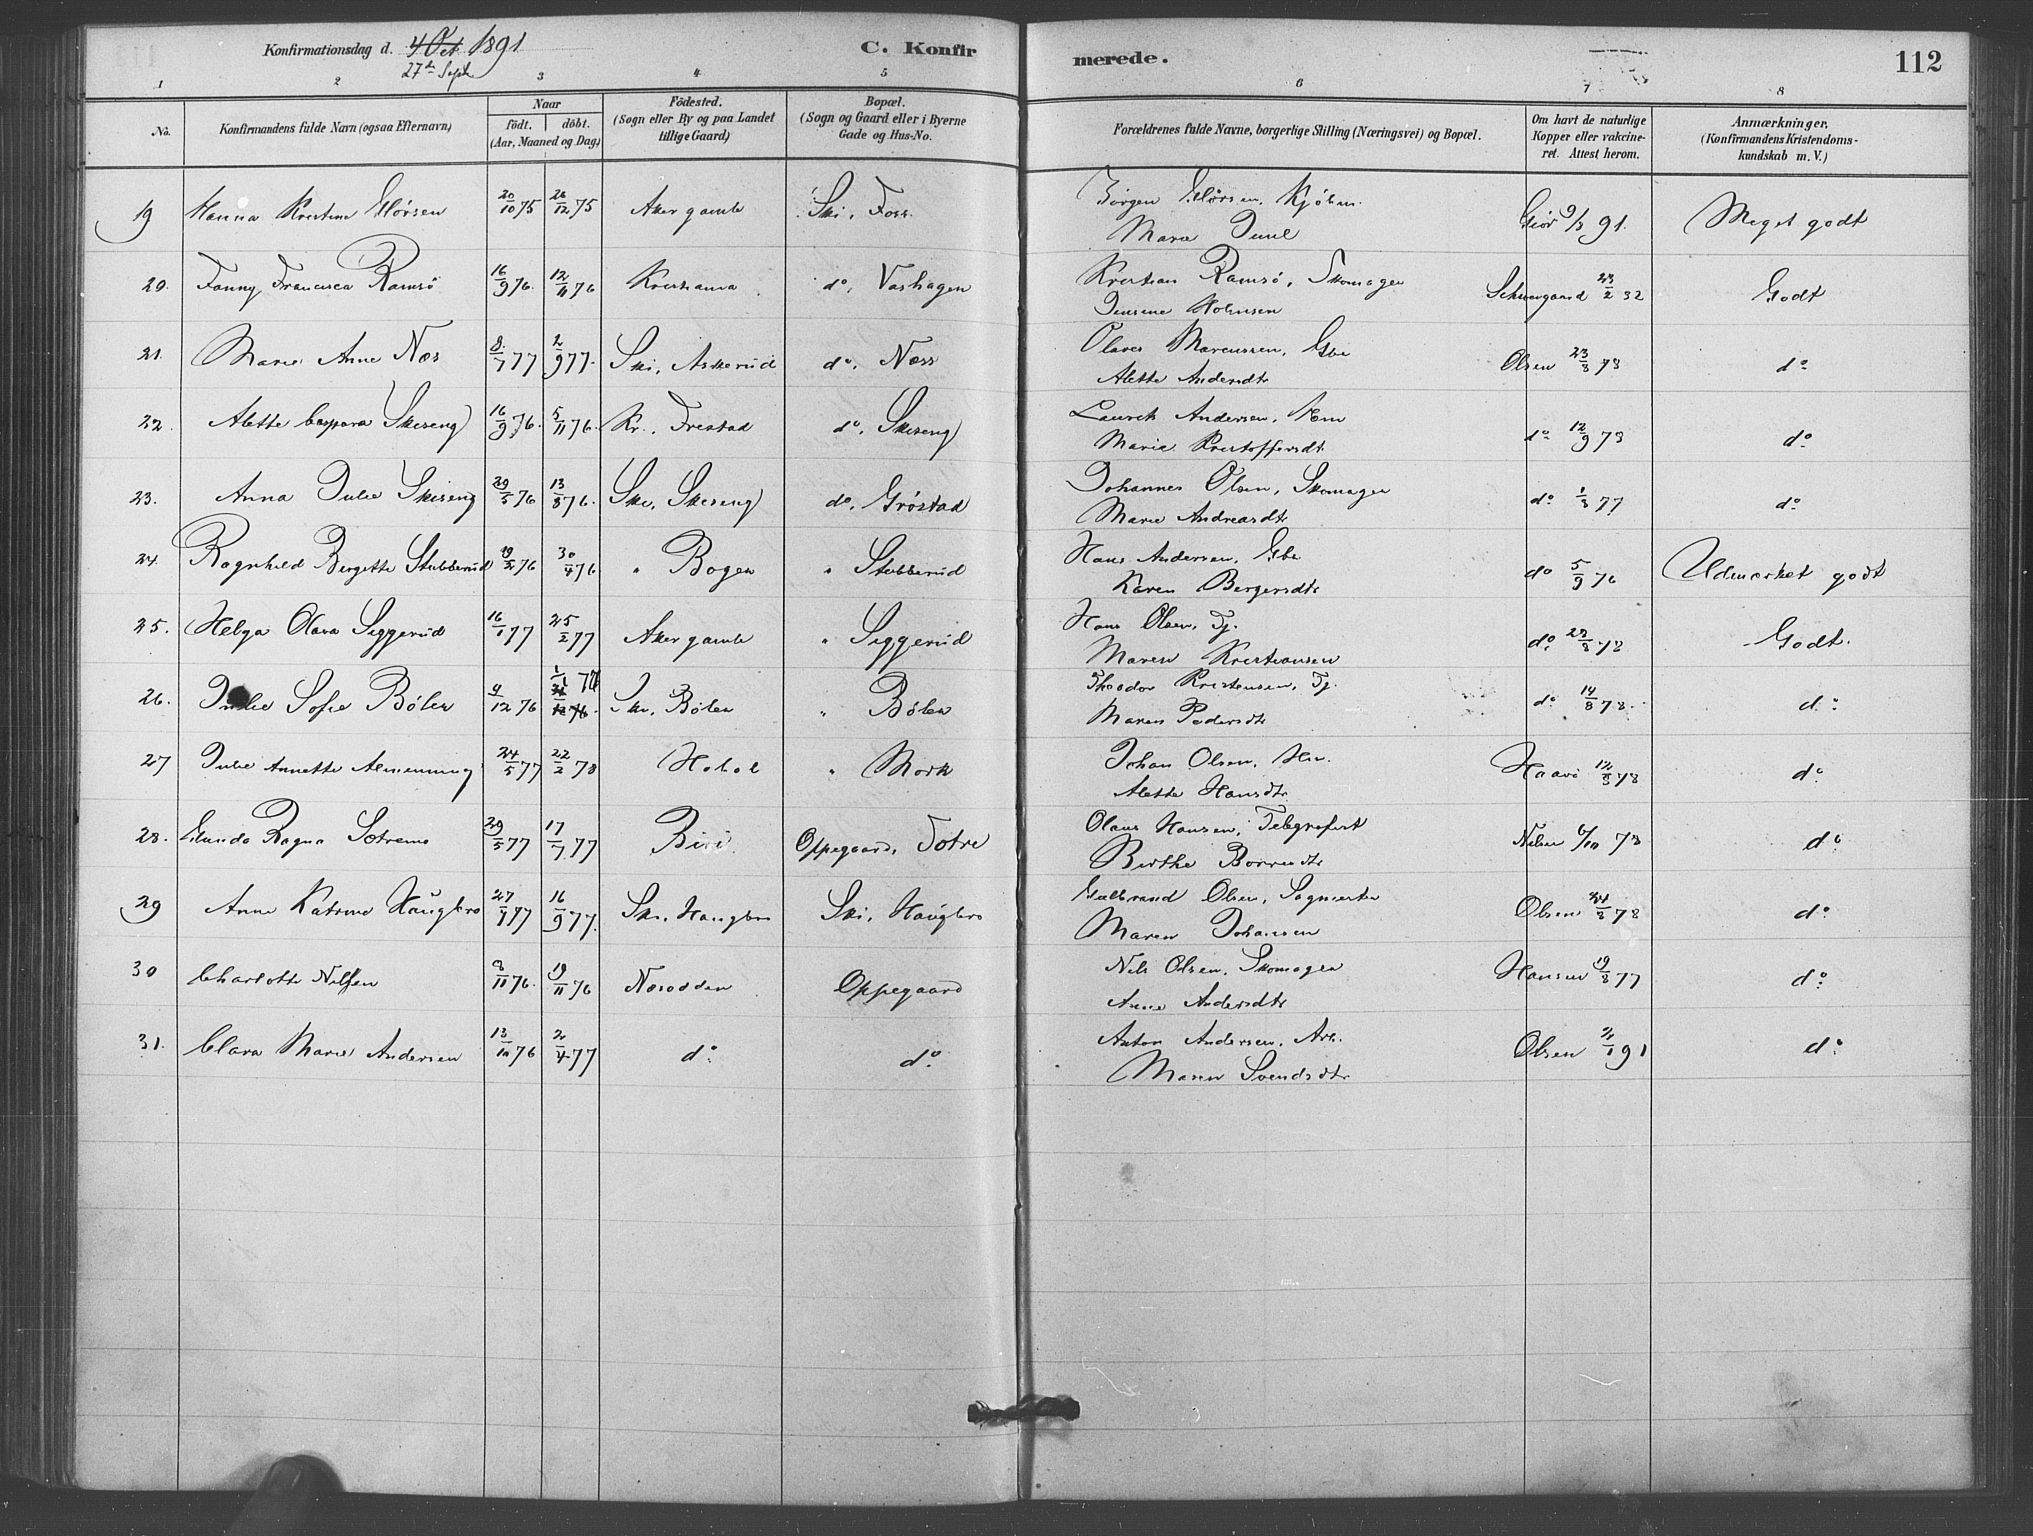 Konfirmationsdag d. 4 Oct. 1891
27de Sept.
C. Konfirmerede.
112
1 2 3 4 5 6 7 8
No.
Konfirmandens fulde Navn (ogsaa Efternavn)
Naar
födt. döbt.
(Aar, Maaned og Dag)
Födested.
(Sogn eller By og paa Landet
tillige Gaard)
Bopæl.
(Sogn og Gaard eller i Byerne
Gade og Hus-No.
Forældrenes fulde Navne, borgerlige Stilling (Næringsvei) og Bopæl.
Om havt de naturlige
Kopper eller vakcine-
ret. Attest herom.
Anmærkninger,
(Konfirmandens Kristendoms-
kundskab m. V.)
19 Hanna Kristine 20/10 75 26/12 75 Aker gamle Ski, Foss. Meget godt
Marie Juul
20. Fanny Francisca Ramsö 16/9 76. 12/11 76 Kristiania do, Vashagen Kristian Ramsö, Skomager 23/2 82 Godt
Jensine
21. Marie Anne Næs 8/7 77 2/9 77. Ski, Askerud do, Næss Olaves Marcussen, Gbr Olsen 23/8 78 do
Alette Andersdtr
22. Alette Caspara Skiseng 16/9 76. 5/11 76. Kr., Frestad do, Skiseng Laurits Andersen, do 12/9 78 do
Marie Kristoffersdtr
23. Anna Julie Skiseng 29/5 76 13/8 76. Ski, Skiseng do, Gröstad Johannes Olsen, Skomager do 1/8 77 do
Marie Andreasdtr
24. Ragnhild Bergette Stubberud 19/2 76 30/4 76 " Bogen " Stubberud Hans Andersen, Gbr do 5/9 76 Udmærket godt
Karen Bergersdtr
25. Helga Olava Siggerud 16/1 77 25/2 77 Aker gamle " Siggerud Hans Olsen, Tj. do. 29/8 78 Godt.
Maren Kristiansen
26. Julie Sofie Bölen 4/12 76 1/1 77 31/12 76. Ski, Bölen " Bölen Theodor Kristensen, Tj. do 14/8 78. do
Maren Pedersdtr
27 Julie Annette Almenning 24/5 77 22/2 78 Hobøl " Mork Johan Olsen, Hsm. 12/8 78 do
Alette Hansdtr.
28. Gunda Ragna Sætremo 29/5 77 17/7 77 Biri Oppegaard, Totre Olaus Hansen, Telegrafist Nilsen 6/10 78 do
Birthe
29 Anne Katrine Haugbro 27/7 77 16/9 77. Ski, Haugbro Ski, Haugbro Gulbrand Olsen, Sagmester Olsen 24/8 78 do
Maren Johansen
30 Charlotte Nilsen 8/11 76. 19/11 76 Næsodden Oppegaard Nils Olsen, Skomager Hansen 19/8 77 do
Anne Andersdtr
31. Clara Marie Andersen 13/10 76 2/4 77 do do. Anton Andersen, Arb. Olsen 2/1 91 do
Maren Svendsdtr